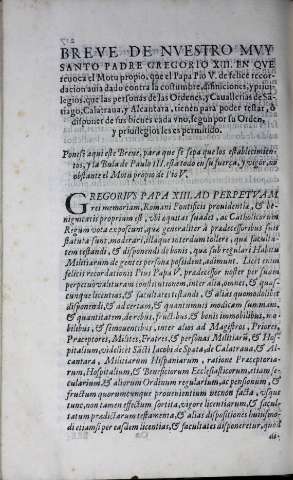 BREVE DE NVESTRO MVY
SANTO PADRE GREGORIO XIII. EN QVE
reuoca el Motu proprio, que el Papa Pio V. de felice recor-
dacion auia dado contra la costumbre, difiniciones, y priui-
legios, que las personas de las Ordenes, y Cauallerias de Sã-
tiago, Calatraua, y Alcantara, tienen para poder testar, ò
disponer de sus bienes cada vno, segun por su Orden,
y priuilegios les es permitido.
Ponese aqui este Breue, para que se sepa que los establecimien-
tos, y la Bula de Paulo III. està todo en su fuerça, y vigor, no
obstante el Motu proprio de Pio V.
GREGORIVS PAPA XIII. AD PERPETVAM
rei memoriam, Romani Pontificis prouidentia, & be-
nignitatis proprium est, vbi equitas suadet, ac Catholicorum
Regum vota exposcunt, que generaliter à prædecessoribus suis
statuta sunt, moderari, illaque interdum tollere, quæ faculta-
tem testandi, & disponendi de bonis, quæ sub regulari Habitu
Militiarum degentes personæ possident, adimunt. Licet enim
felicis recordationis Pius Papa V. prædecessor noster per suam
perpetuò valituram constitutionem, inter alia, omnes, & quas-
cunque licentias, & facultates testandi, & alia quomodolibet
disponendi, & ad certam, & quantumuis modicam summam,
& quantitatem, de rebus, fructibus, & bonis immobilibus, mo-
bilibus, & semouentibus, inter alios ad Magistros, Priores,
Præceptores, Milites, Fratres, & personas Militiarũ, & Hos-
pitalium, videlicet Sācti Iacobi de Spata, de Calatraua, & Al-
cantara, Militiarum Hispaniarum, ratione Præceptoria-
rum, Hospitalium, & Beneficiorum Ecclesiasticorum, etiam se-
cularium, & aliorum Ordinum regularium, ac pensionum, &
fructum quorumcunque prouenientium necnon facta, vsque
tunc, non tamen effectum sortita, vigore licentiarum, & facul-
tatum prædictarum testamenta, & alias dispositiones huiusmo-
di etiamsi per easdem licentias, & facultates disponeretur, quod